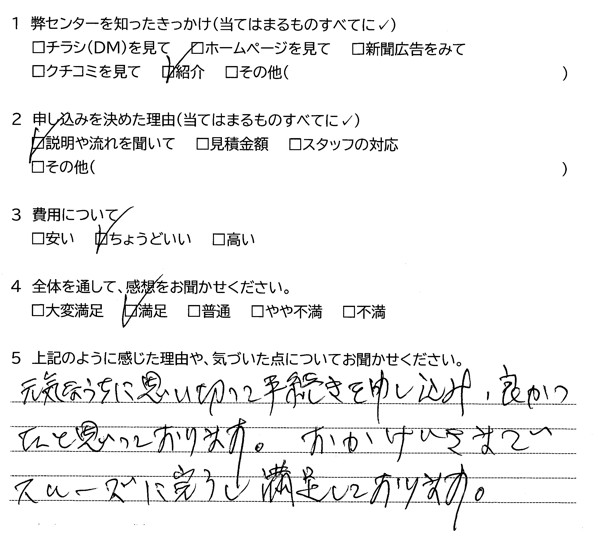 1 弊センターを知ったきっかけ(当てはまるものすべてに✓)
□チラシ(DM)を見て □ホームページを見て □新聞広告をみて
□クチコミを見て ☑紹介 □その他( )
2 申し込みを決めた理由(当てはまるものすべてに✓)
☑説明や流れを聞いて □見積金額 □スタッフの対応
□その他( )
3 費用について
□安い ☑ちょうどいい □高い
4 全体を通して、感想をお聞かせください。
□大変満足 ☑満足 □普通 □やや不満 □不満
5 上記のように感じた理由や、気づいた点についてお聞かせください。
元気なうちに思い切って手続きを申し込み、良かっ
たと思っております。 おかげさまで
スムーズに完了し満足しております。